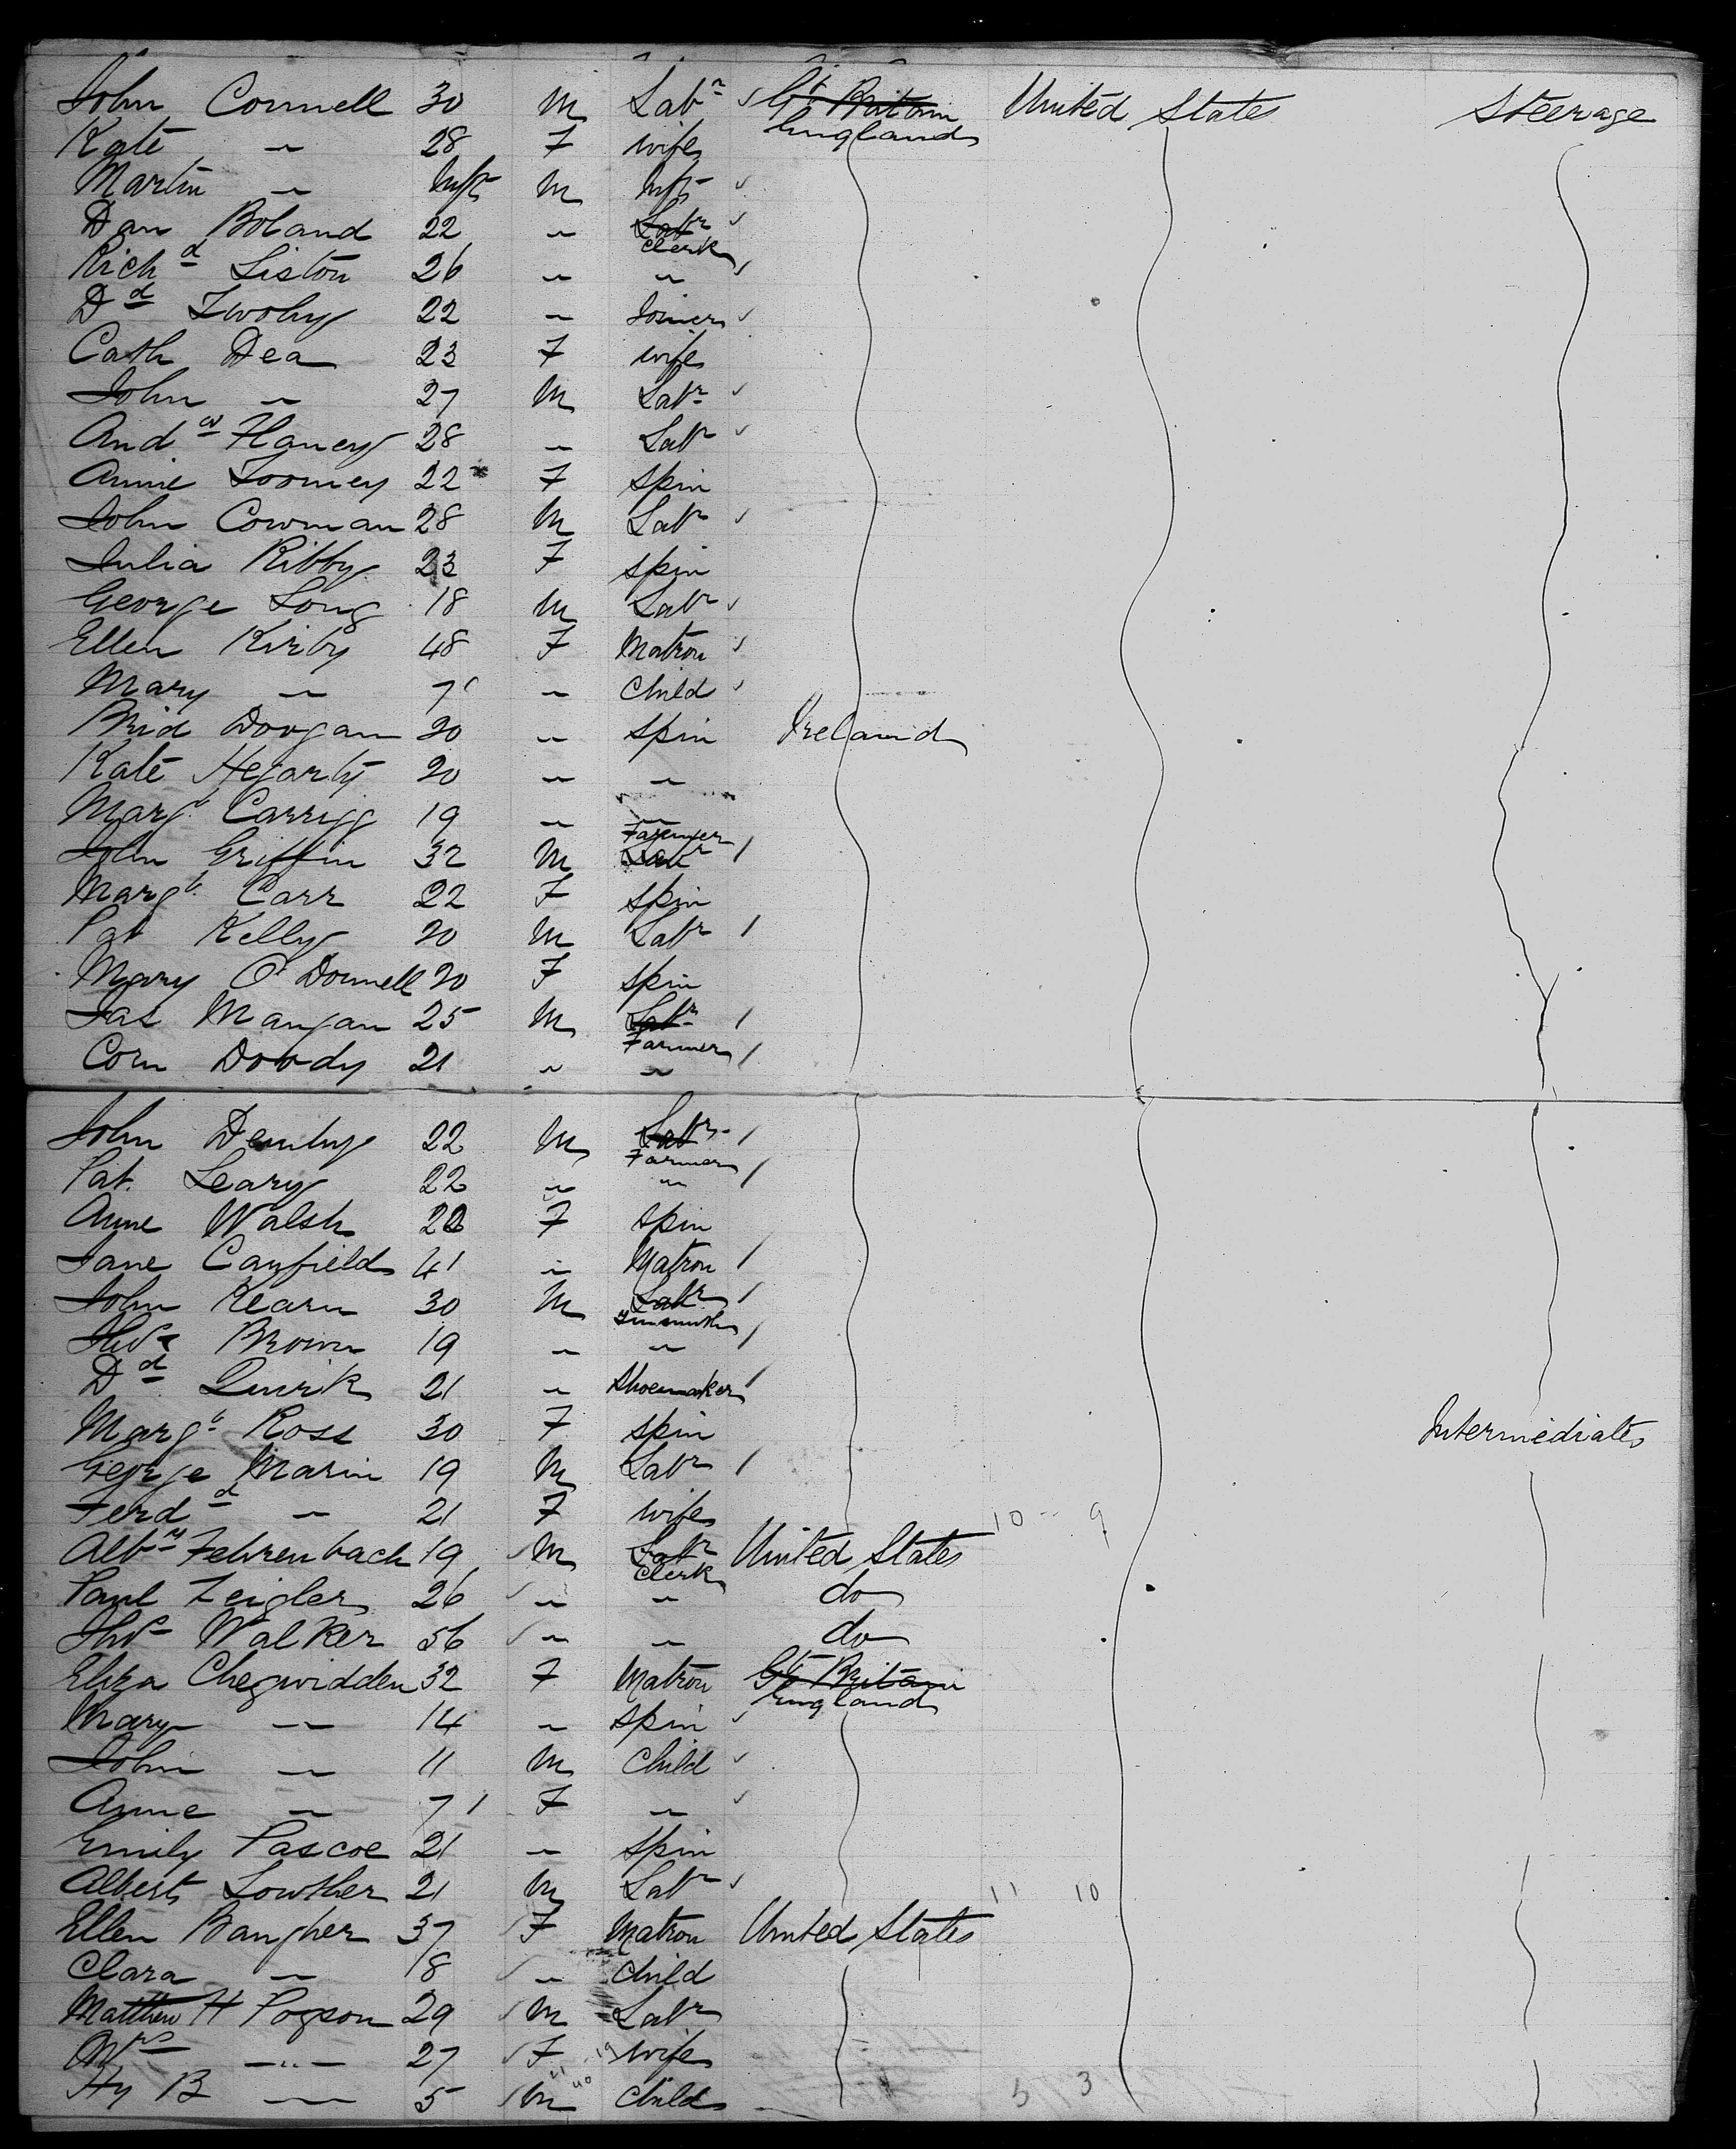 John Connell 30 M Labr Gt Britain United States Steerage
England
Kate " 28 F wife
Martin " Inft M Inft
Dan Boland 22 " Labr
Clerk
Richd Liston 26 " "
Dd Twohy 22 " Joiner
Cath Dea 23 F wife
John " 27 M Labr
Andw Haney 28 " Labr
Annie Toomey 22 F spin
John Cowman 28 M Labr
Julia Ribby 23 F spin
George Long 18 M Labr
Ellen Kirby 48 F Matron
Mary " 7 " Child
Brid Doogan 20 " spin Ireland
Kate Hegarty 20 " "
Margt Carrigg 19 " "
Farmer
John Griffin 32 M Labr
Margt Carr 22 F spin
Pat Kelly 20 M Labr
Mary O'Donnell 20 F spin
Jas Mangan 25 M Labr
Farmer
Corn Doody 21 " "
John 22 M Labr
Farmer
Pat Leary 22 " "
Anne Walsh 22 F spin
Jane Canfield 41 " Matron
John Kearn 30 M Labr
Tinsmith
Thos Brown 19 " "
Dd Quirk 21 " Shoemaker
Margt Ross 30 F spin Intermediate
George Marin 19 M Labr
Ferdd " 21 F wife 10 - 9
Albt Fehrenbach 19 M Labr United States
Clerk
Paul Zeigler 26 " " do
Thos Walker 56 " " do
Eliza Chegwidden 32 F Matron Gt Britain
England
Mary " 14 " spin
John " 11 M Child
Anne " 7 F "
Emily Pascoe 21 " spin
Albert Lowther 21 M Labr 11 10
Ellen Baugher 37 F Matron United States
Clara " 8 " child
Matthew H Pogson 29 M Labr
Mrs " 27 F wife
Hy B " 5 M child 5 3